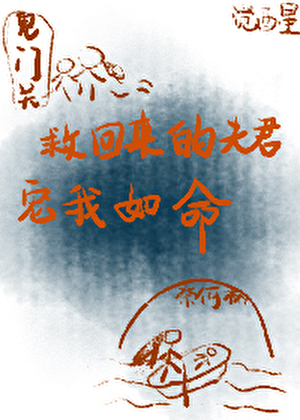 鬼门关
觉西星
救回来的夫君
宠我如命
奈何桥